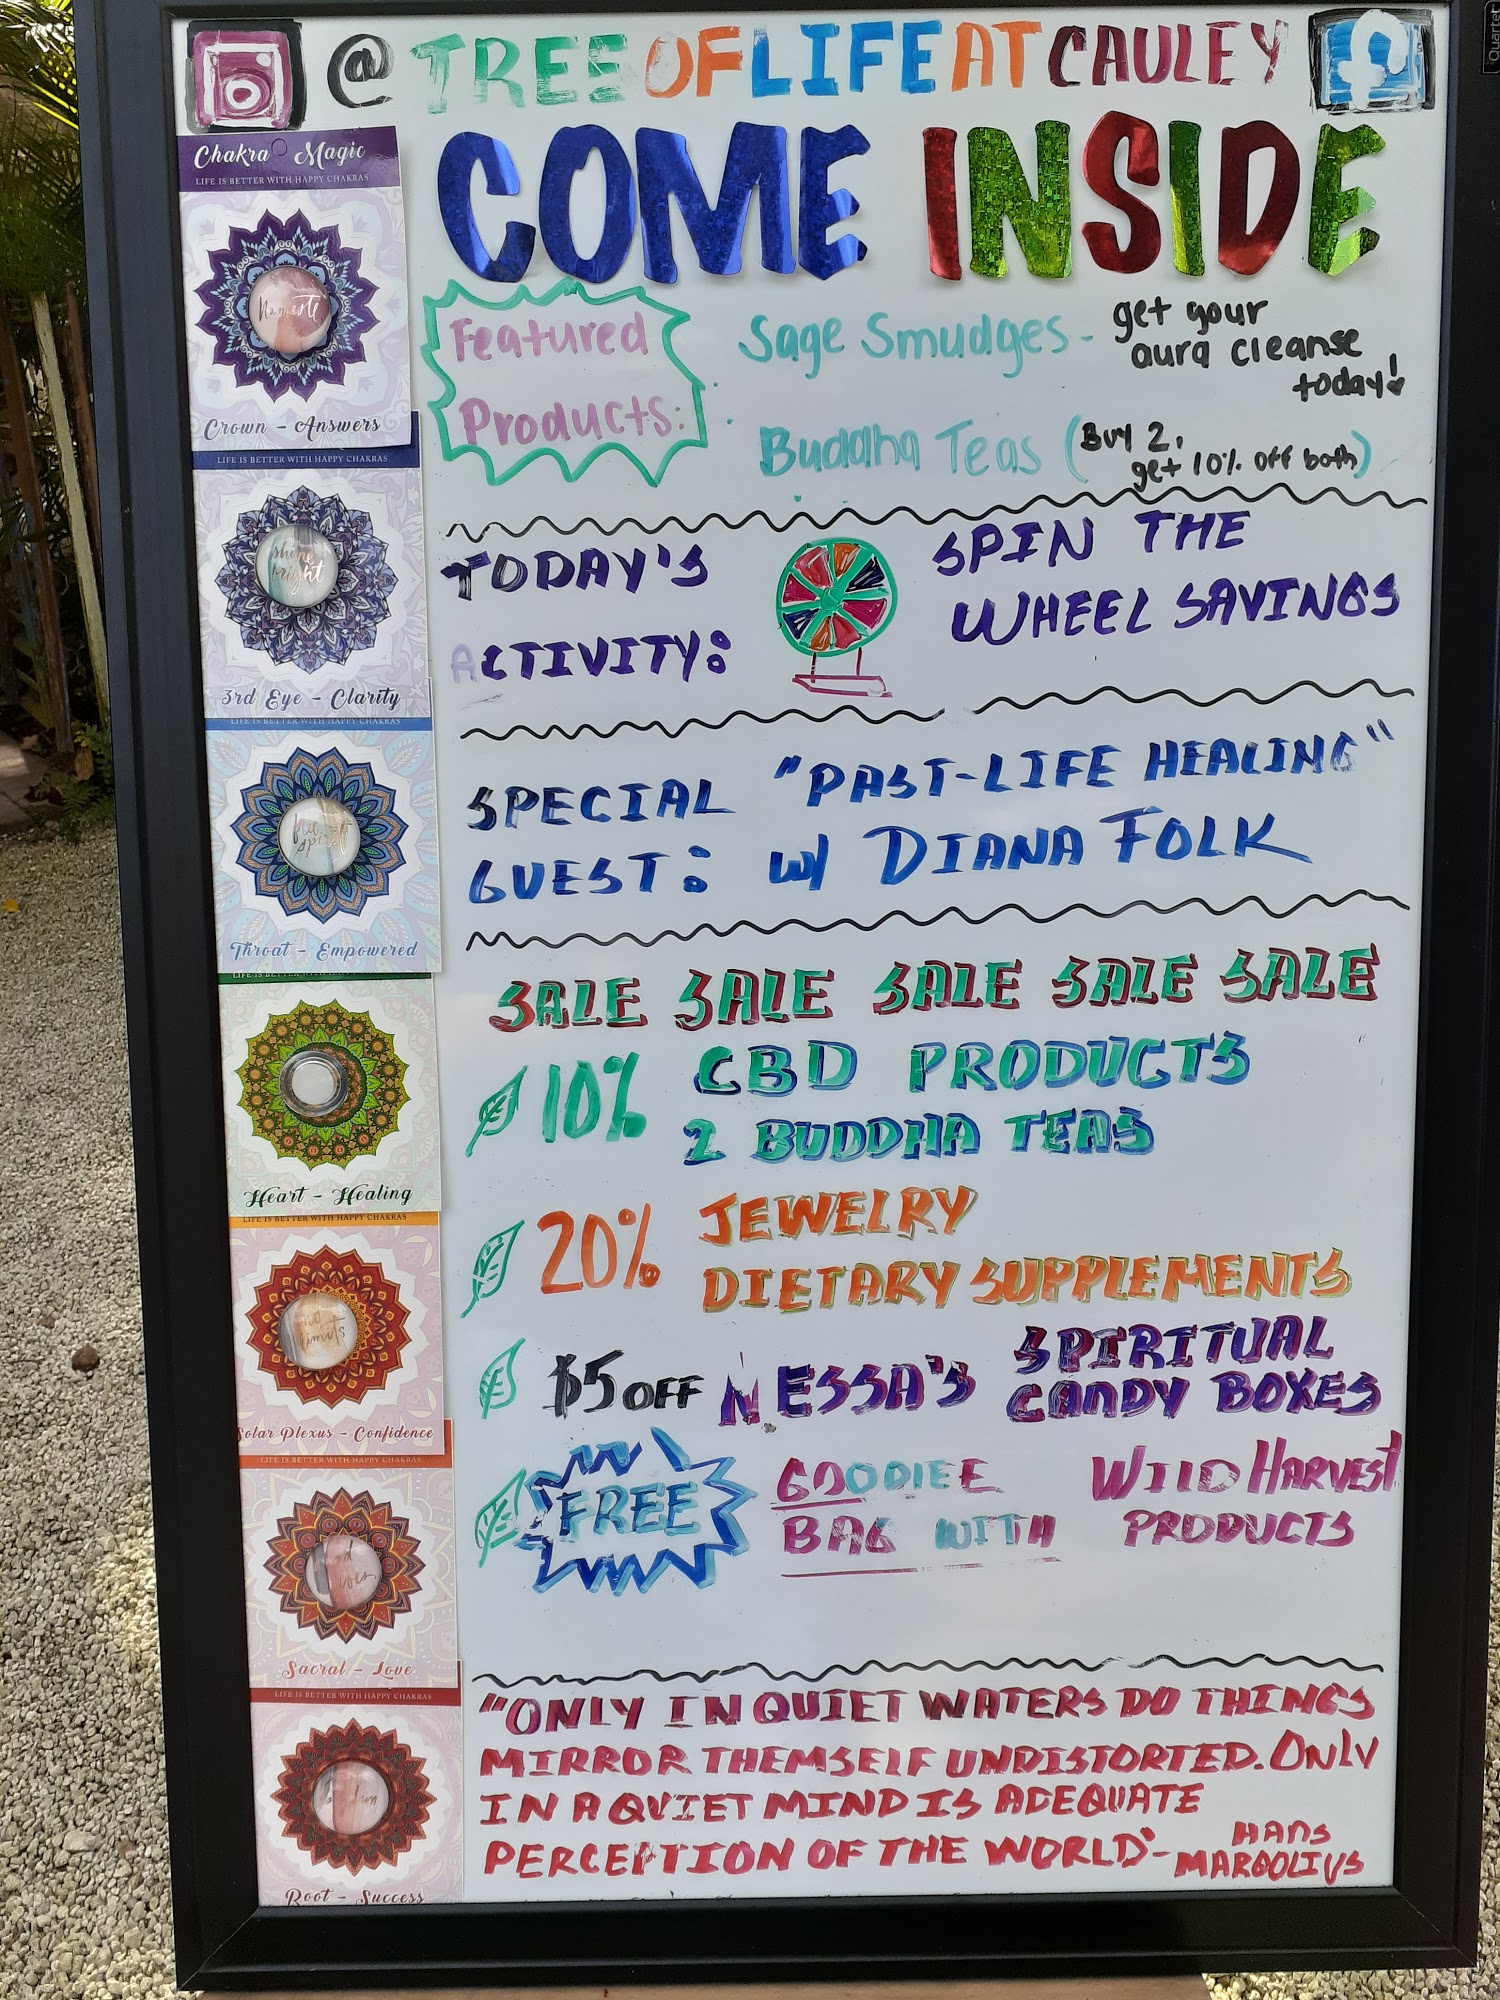 @TREEOFLIFEATCAULEY
Quartet
COME INSIDE
Chakra Magic
LIFE IS BETTER WITH HAPPY CHAKRAS
Namaste
Crown - Answers
LIFE IS BETTER WITH HAPPY CHAKRAS
shine
bright
3rd Eye - Clarity
LIFE IS BETTER WITH HAPPY CHAKRAS
Throat - Empowered
LIFE IS BETTER
Heart - Healing
LIFE IS BETTER WITH HAPPY CHAKRAS
no
limits
Solar Plexus - Confidence
LIFE IS BETTER WITH HAPPY CHAKRAS
Sacral - Love
LIFE IS BETTER WITH HAPPY CHAKRAS
Root - Success
Featured
Products:
Sage Smudges - get your
aura cleanse
today!
Buddha Teas (Buy 2,
get 10% off both)
TODAY'S
ACTIVITY:
SPIN THE
WHEEL SAVINGS
SPECIAL "PAST-LIFE HEALING"
GUEST: w/ DIANA FOLK
SALE SALE SALE SALE SALE
10% CBD PRODUCTS
2 BUDDHA TEAS
20% JEWELRY
DIETARY SUPPLEMENTS
$5 OFF NESSA'S SPIRITUAL
CANDY BOXES
FREE GOODIEE WILD HARVEST
BAG WITH PRODUCTS
"ONLY IN QUIET WATERS DO THINGS
MIRROR THEMSELF UNDISTORTED. ONLY
IN A QUIET MIND IS ADEQUATE
PERCEPTION OF THE WORLD" - HANS
MARGOLIUS